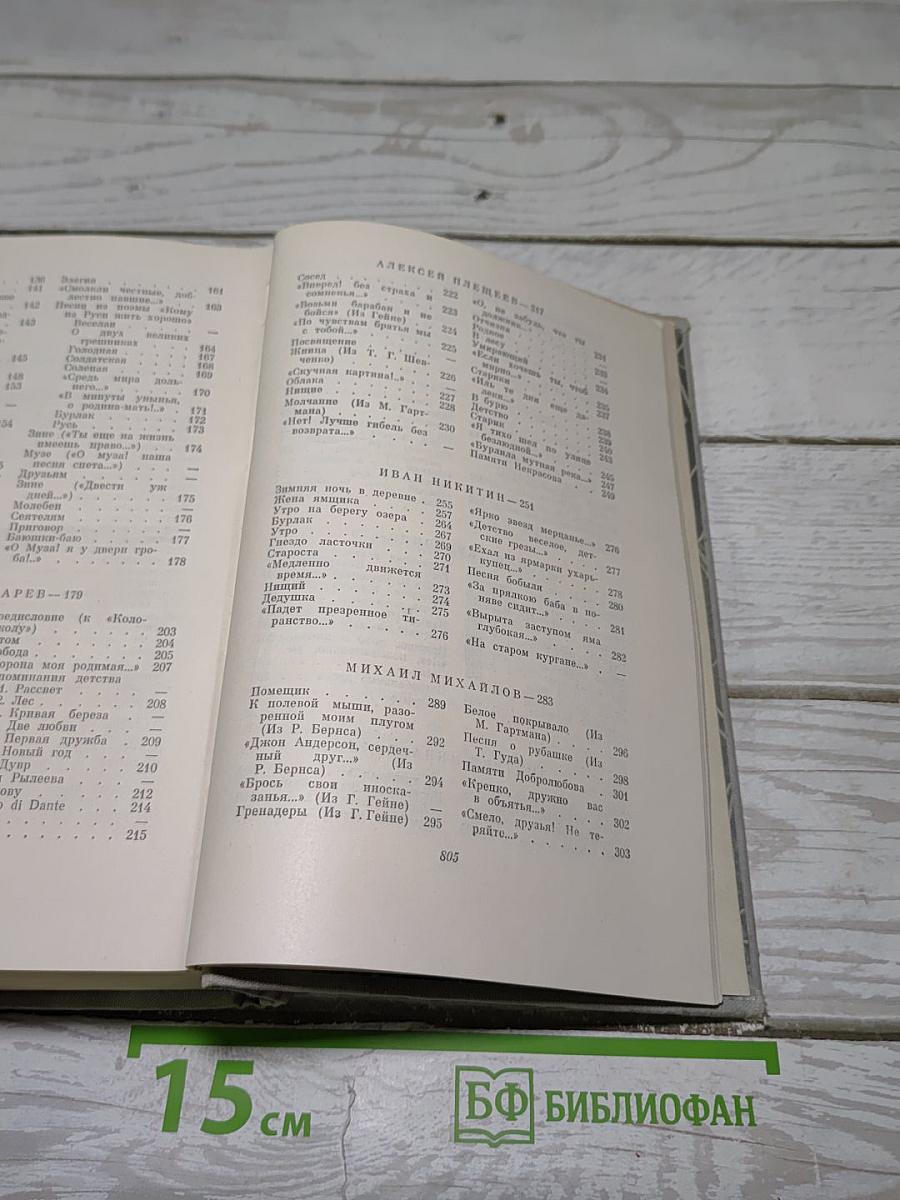 136
141
142
143
145
148
153
—
154
Элегия . . . . . 161
«Смолкли честные, доб-
лестно павшие...» . . 163
Песни из поэмы «Кому
на Руси жить хорошо»
Веселая . . . . —
О двух великих
грешниках . . . 164
Голодная . . . . 167
Солдатская . . . 168
Соленая . . . . 169
«Средь мира доль-
него...» . . . . 170
«В минуты унынья,
о родина-мать!..» 171
Бурлак . . . . . 172
Русь . . . . . 173
Зине («Ты еще на жизнь
имеешь право...») . . 174
Музе («О муза! наша
песня спета...») . . —
Друзьям . . . . . —
Зине («Двести уж
дней...») . . . . . 175
Молебен . . . . . —
Сеятелям . . . . . 176
Приговор . . . . . —
Баюшки-баю . . . . 177
«О Муза! я у двери гро-
ба!..» . . . . . 178
АРЕВ — 179
редисловие (к «Коло-
колу») . . . . . 203
. . . . . 204
. . . . . 205
орона моя родимая...» 207
поминания детства
Рассвет . . . . —
Лес . . . . . 208
Кривая береза . . —
Две любви . . . —
Первая дружба . 209
Новый год . . . —
. . . . . 210
Рылеева —
. . . . . 212
di Dante . . . . 214
. . . . . —
. . . . . 215
АЛЕКСЕЙ ПЛЕЩЕЕВ — 217
Сосед . . . . . 222
«Вперед! без страха и
сомненья...» . . . . 223
«Возьми барабан и не
бойся» (Из Гейне) . . 224
«По чувствам братья мы
с тобой...» . . . . 225
Посвящение . . . . —
Жница (Из Т. Г. Шев-
ченко) . . . . . 226
«Скучная картина!..» . —
Облака . . . . . 227
Нищие . . . . . 228
Молчание (Из М. Гарт-
мана) . . . . . 230
«Нет! Лучше гибель без
возврата...» . . . . —
«О, не забудь, что ты
должник...» . . . . 231
Отчизна
Родное
В лесу
Умирающий
«Если хочешь ты, чтоб
мирно...»
Старики
«Иль те дни еще да-
леки...»
В бурю
Детство
Старик
«Я тихо шел по улице
безлюдной...»
«Бурлила мутная река...»
Памяти Некрасова . . 249
ИВАН НИКИТИН — 251
Зимняя ночь в деревне . 255
Жена ямщика . . . . 257
Утро на берегу озера . 264
Бурлак . . . . . 267
Утро . . . . . 269
Гнездо ласточки . . . 270
Староста . . . . . 271
«Медленно движется
время...» . . . . . 273
Нищий . . . . . 274
Дедушка . . . . . 275
«Падет презренное ти-
ранство...» . . . . 276
«Ярко звезд мерцанье...» 276
«Детство веселое, дет-
ские грезы...» . . . 277
«Ехал из ярмарки ухарь-
купец...» . . . . . 278
Песня бобыля . . . . 280
«За прялкою баба в по-
няве сидит...» . . . 281
«Вырыта заступом яма
глубокая...» . . . . 282
«На старом кургане...» . —
МИХАИЛ МИХАЙЛОВ — 283
Помещик . . . . . 289
К полевой мыши, разо-
ренной моим плугом
(Из Р. Бернса) . . . 292
«Джон Андерсон, сердеч-
ный друг...» (Из
Р. Бернса) . . . . 294
«Брось свои иноска-
занья...» (Из Г. Гейне) —
Гренадеры (Из Г. Гейне) 295
Белое покрывало (Из
М. Гартмана) . . . . 296
Песня о рубашке (Из
Т. Гуда) . . . . . 298
Памяти Добролюбова . 301
«Крепко, дружно вас
в объятья...» . . . . 302
«Смело, друзья! Не те-
ряйте...» . . . . . 303
805
15 см
БФ БИБЛИОФАН